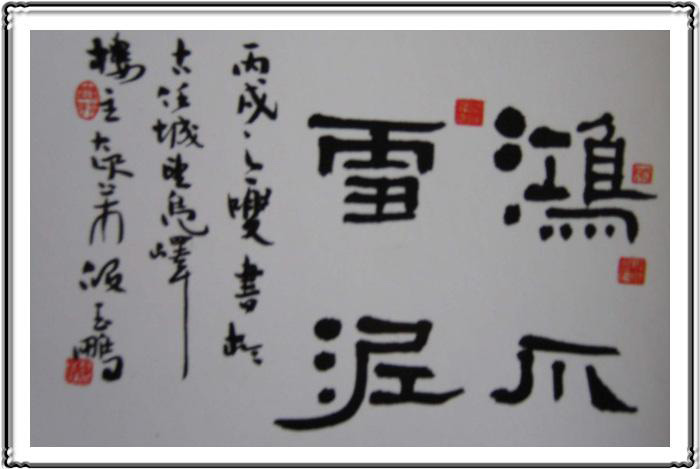 鴻爪
雪泥
丙戌之夏書於
古任城望嶧
樓主玉鵬